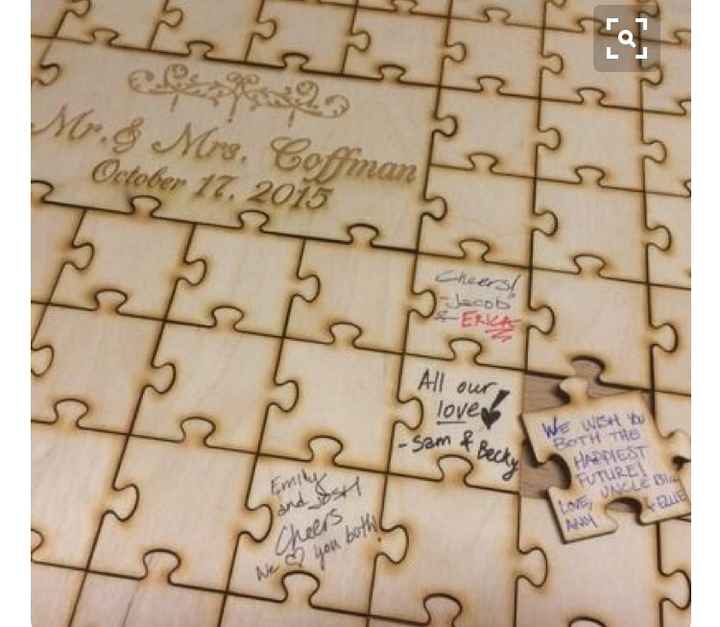 Mr. & Mrs. Coffman
October 17, 2015
Cheers!
-Jacob
& ERICA
All our
love!
-Sam & Becky
WE WISH YOU
BOTH THE
HAPPIEST
FUTURE!
LOVE, UNCLE BILL
AMY & ELLIE
Emily
and JOSH
Cheers
We ♡ you both!